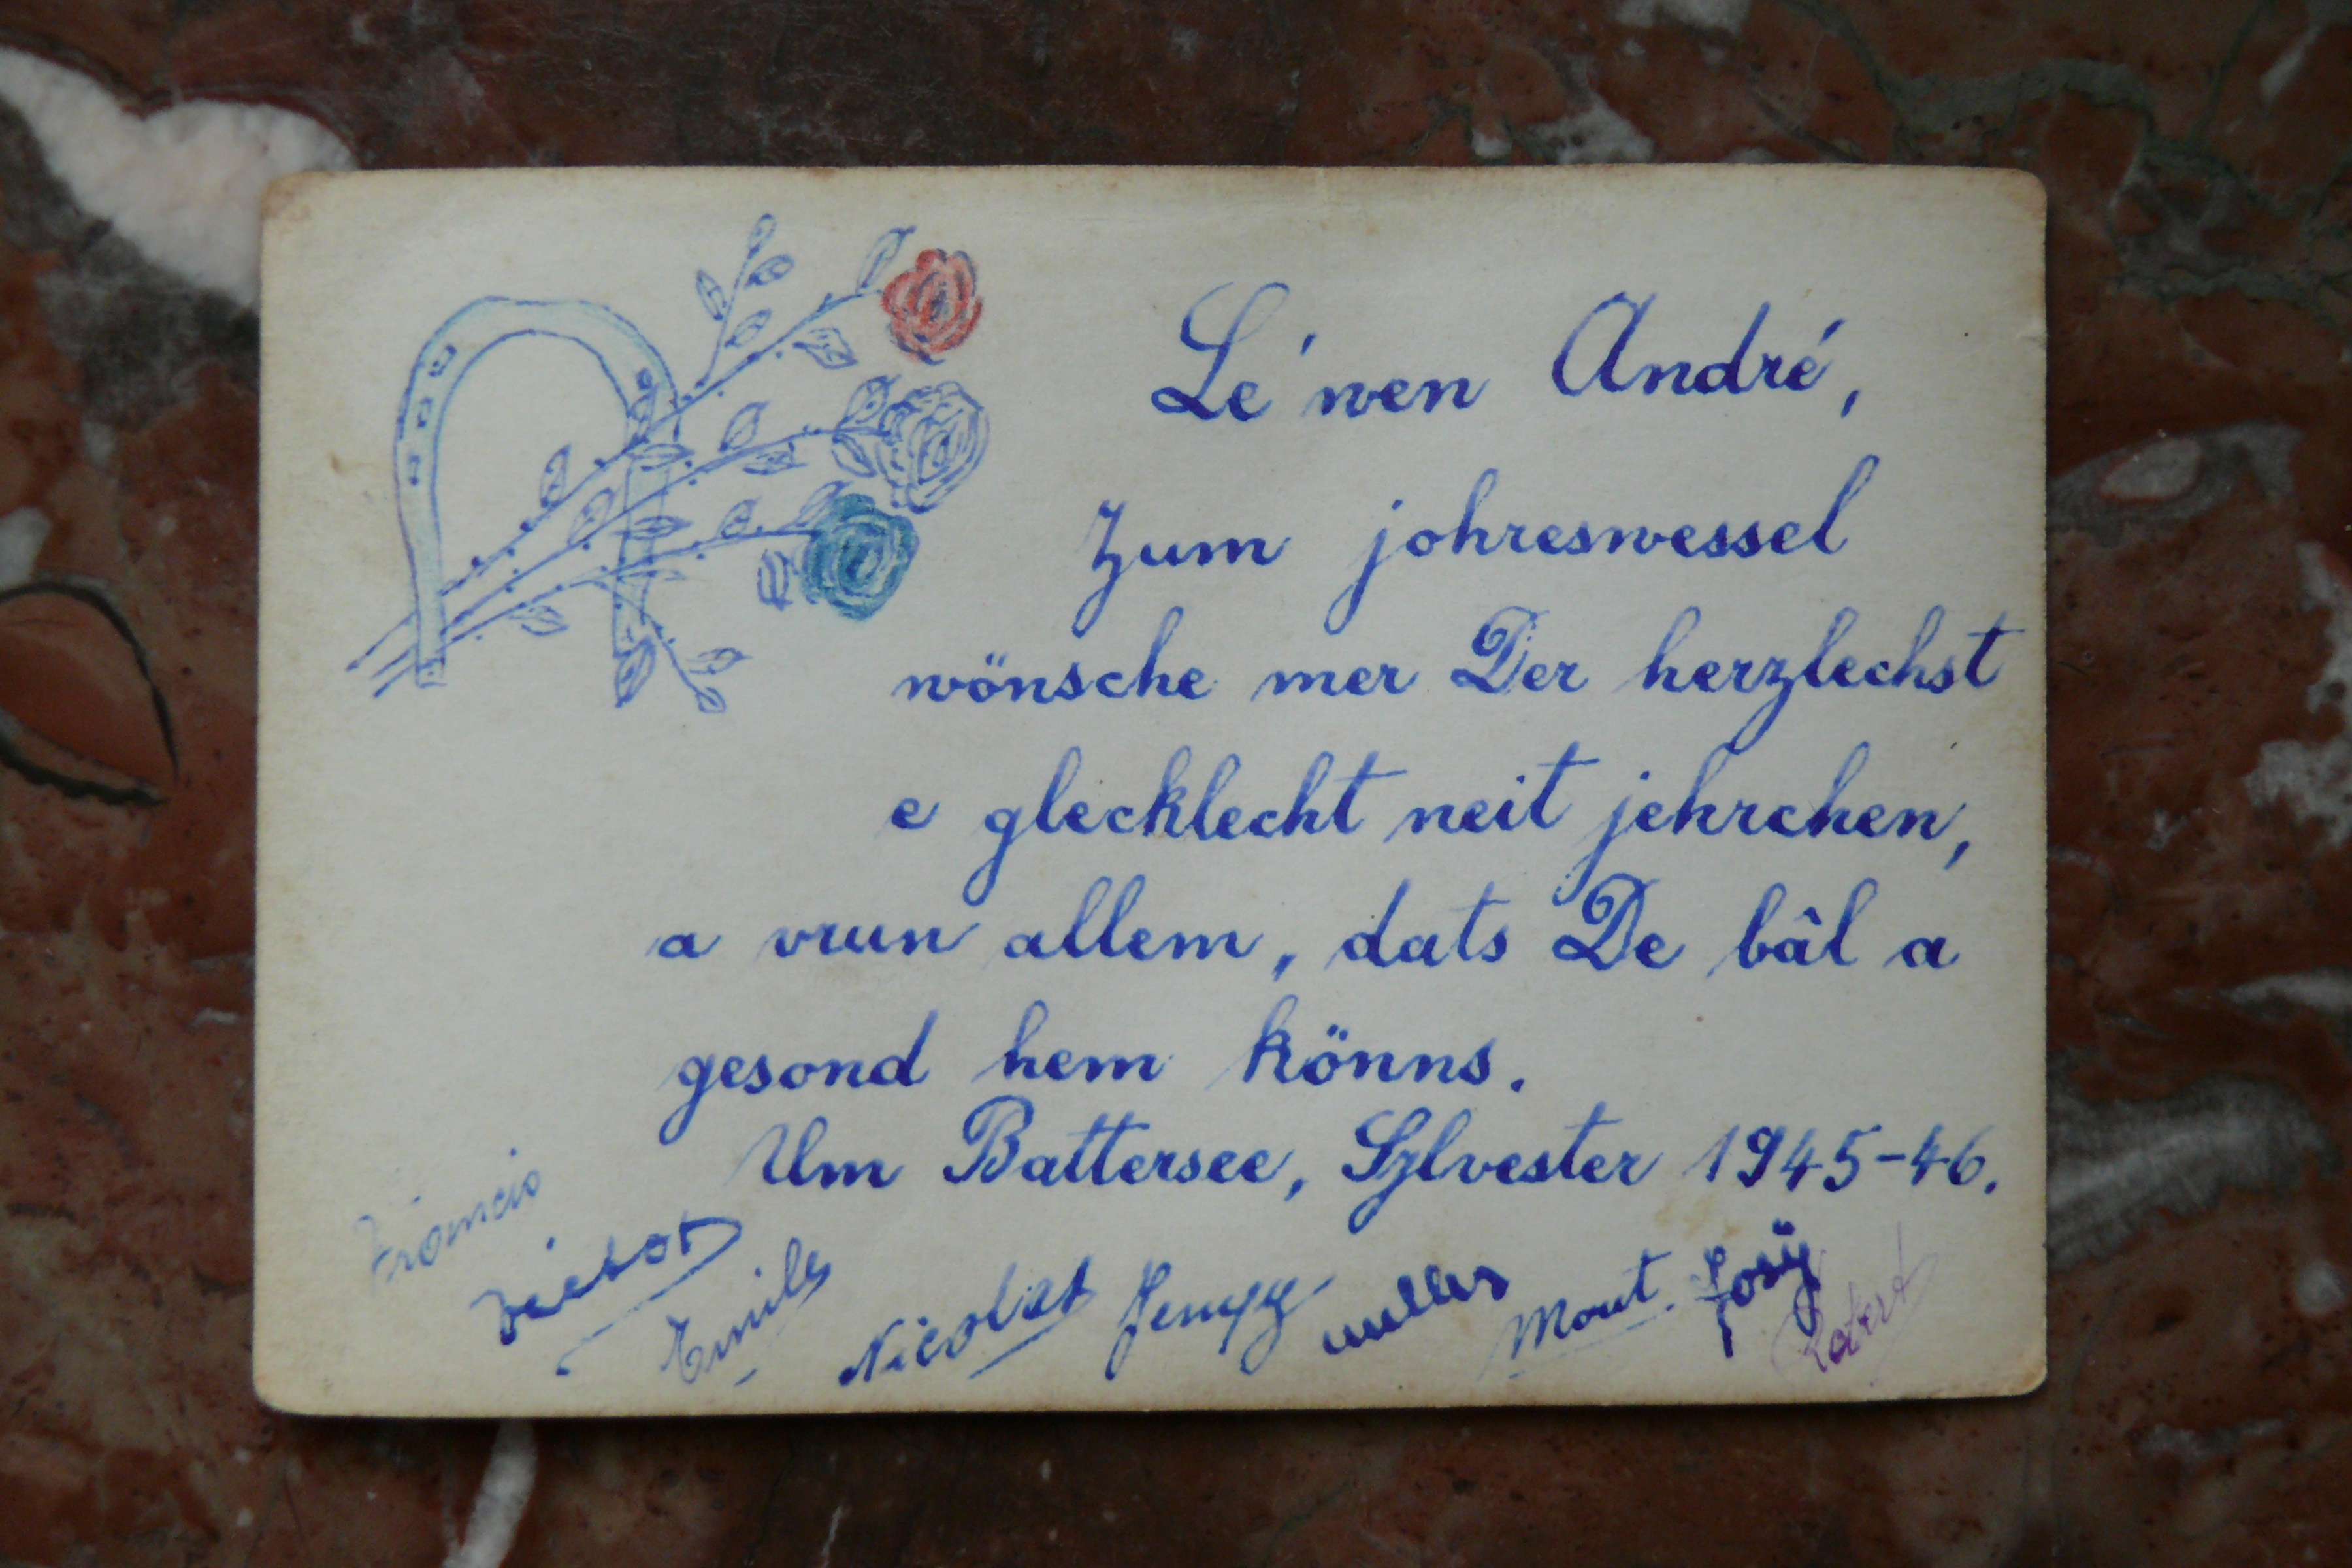 Le'wen André,
Zum johreswessel
wönsche mer Der herzlechst
e glecklecht neit jehrchen,
a vrun allem, dats De bâl a
gesond hem könns.
Um Battersee, Sylvester 1945-46.
Francis
Victor
Emile
Nicolas Jempy Mout. Josÿ
Robert